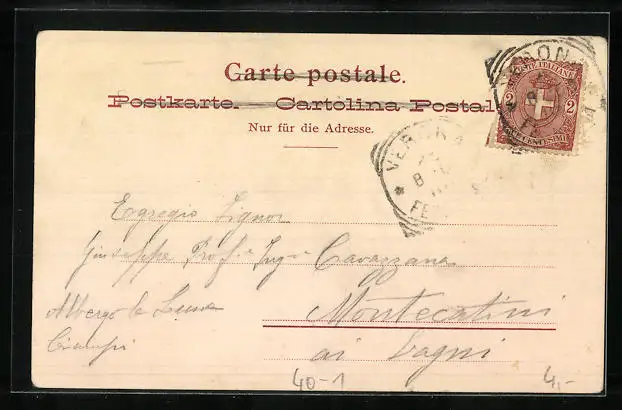 Carte postale.
Postkarte. — Cartolina Postal
Nur für die Adresse.
POSTE ITALIANE
2 2
VERONA
8
Egregio Signor
Giuseppe Prof. Ing. Cavazzana
Albergo la Luna
Montecatini
ai Bagni
40-1
4,-